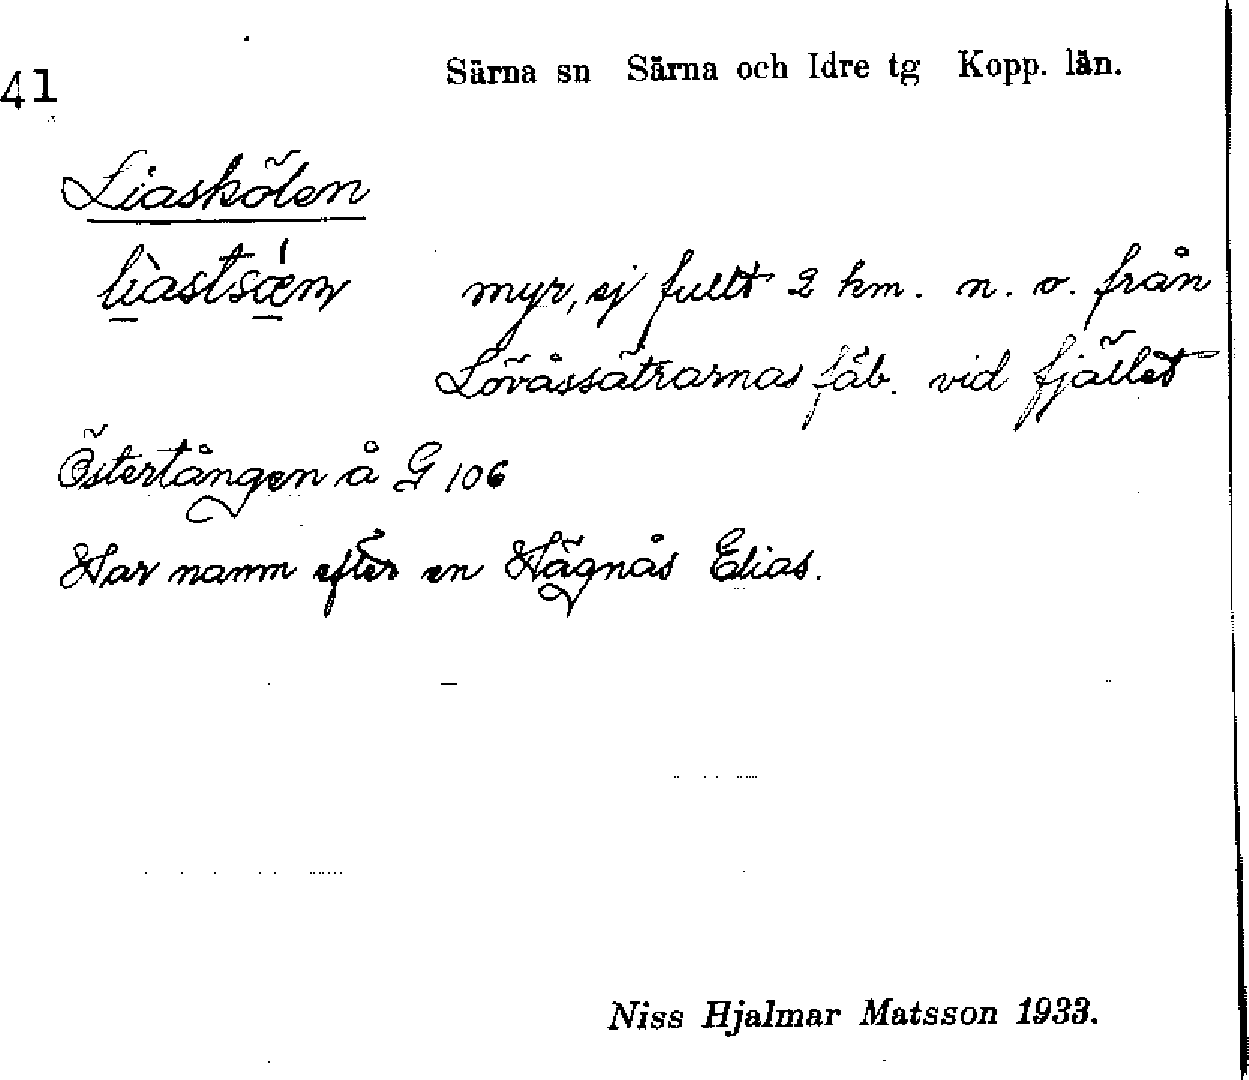 41
Särna sn Särna och Idre tg Kopp. län.
Liaskölen
myr, ej fullt 2 km. n. o. från
Lövåssätrarnas fäb. vid fjället
Östertången å G 106
Har namn efter en Hägnås Elias.
Niss Hjalmar Matsson 1933.